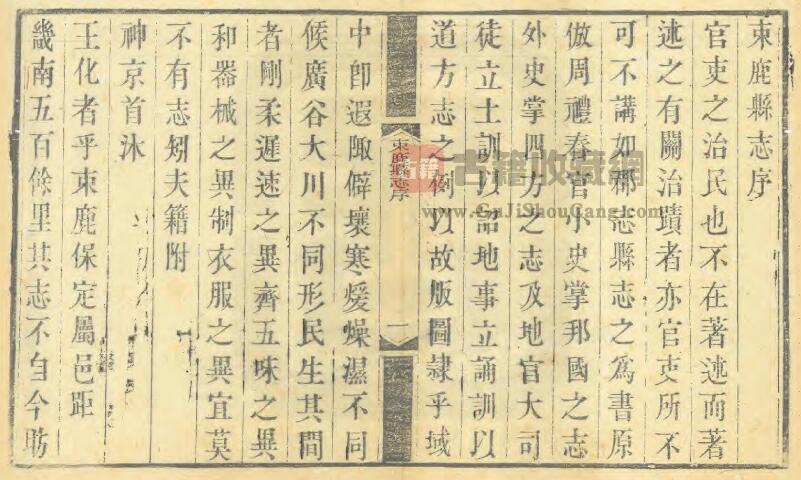 束鹿縣志序
官吏之治民也不在著述而著
述之有關治蹟者亦官吏所不
可不講如郡志縣志之爲書原
倣周禮春官小史掌邦國之志
外史掌四方之志及地官大司
徒立土訓以詔地事立誦訓以
道方志之例以故版圖隷乎域
束鹿縣志序
一
中卽遐陬僻壤寒煖燥濕不同
候廣谷大川不同形民生其間
者剛柔遲速之異齊五味之異
和器械之異制衣服之異宜莫
不有志矧夫籍附
神京首沐
王化者乎束鹿保定屬邑距
畿南五百餘里其志不自今昉
古籍
古籍收藏網
www.GuJiShouCang.com